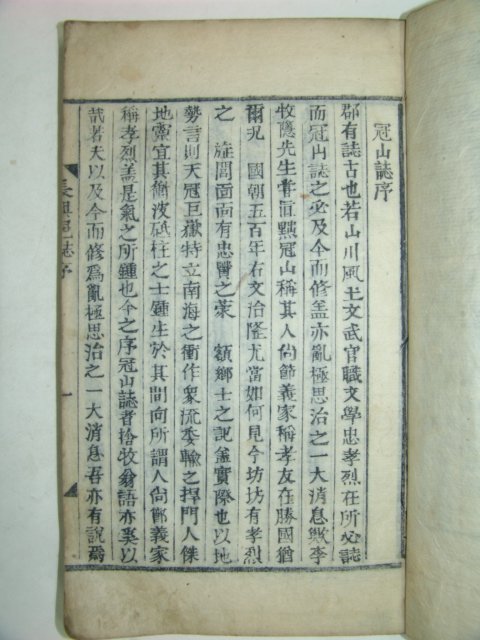 冠山誌序
郡有誌古也若山川風土文武官職文學忠孝烈在所必誌
而冠山誌之必及今而修盖亦亂極思治之一大消息歟李
牧隱先生嘗 點冠山稱其人尙節義家稱孝友在勝國猶
爾況 國朝五百年右文治隆尤當如何見今坊坊有孝烈
之 旌閭面面有忠賢之 額鄕士之記 實際也以地
勢言則天冠巨嶽特立南海之衝作衆流委輸之捍門人傑
地靈宜其衝波砥柱之士鍾生於其間向所謂人尙節義家
稱孝烈盖是氣之所鍾也今之序冠山誌者捨牧翁語亦奚以
哉若夫以及今而修爲亂極思治之一大消息吾亦有說焉
長興冠山誌序 一